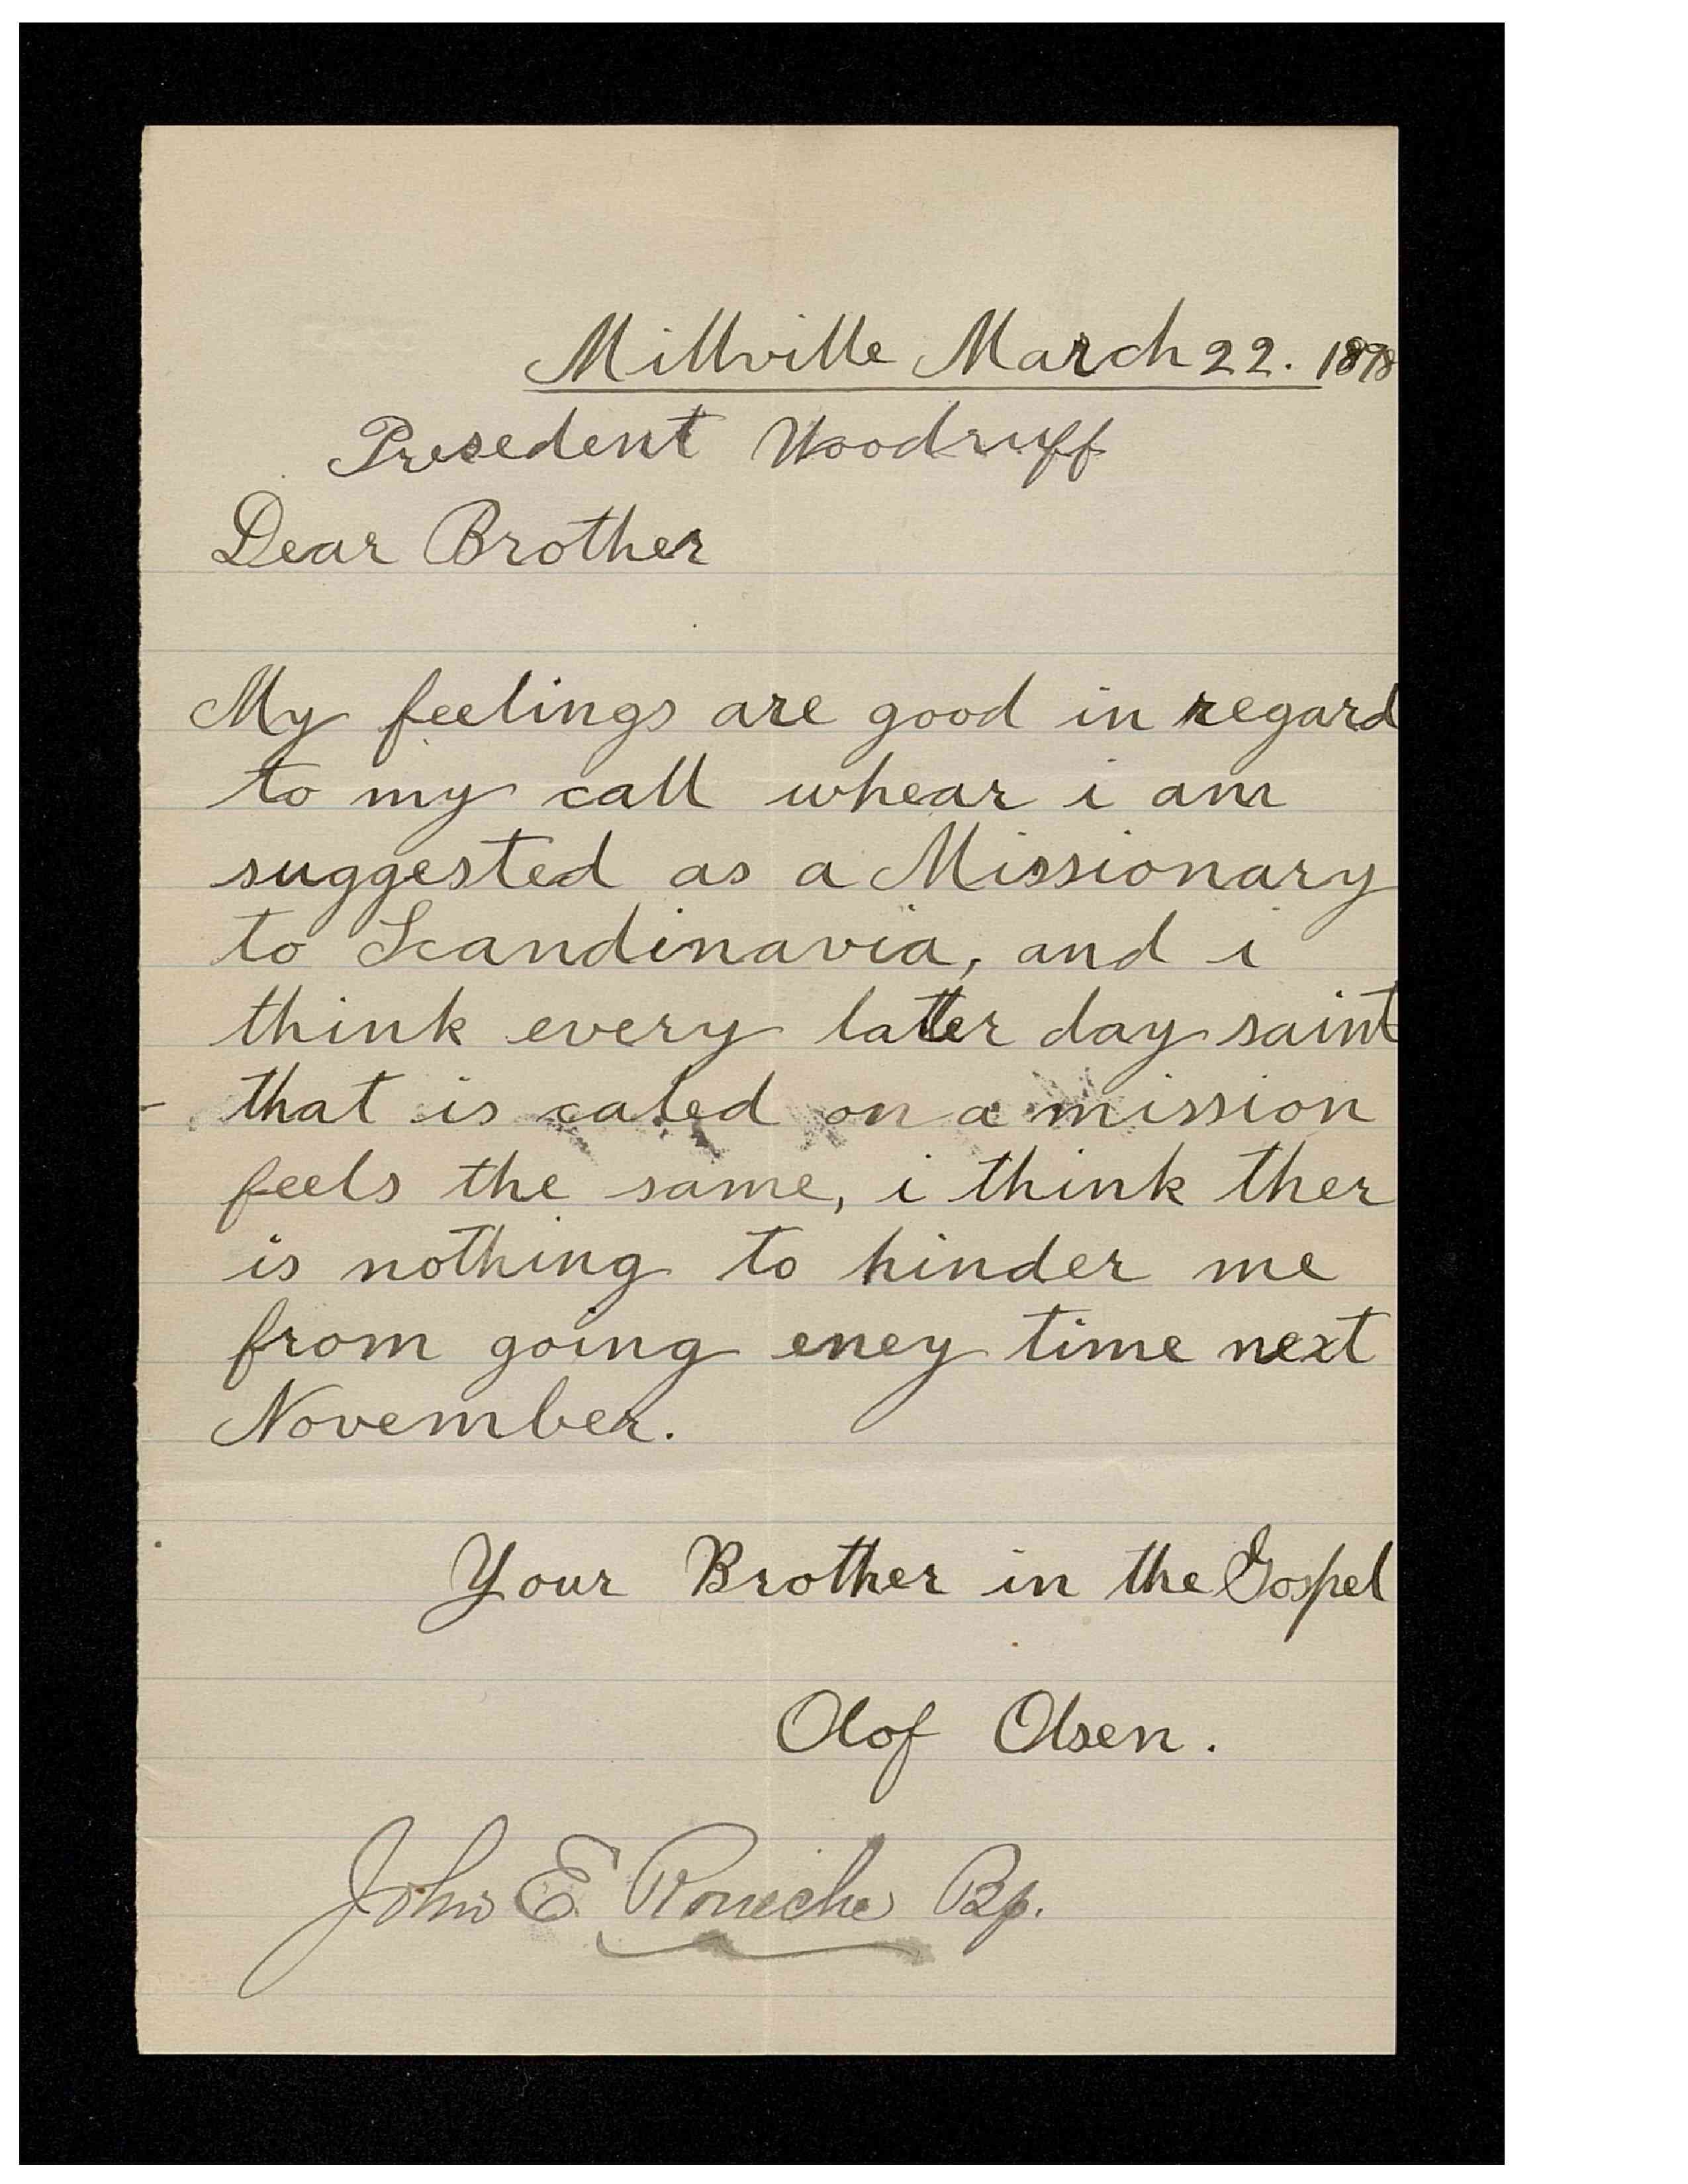 Millville March 22. 1898
Presedent Woodruff
Dear Brother
My feelings are good in regard
to my call whear i am
suggested as a Missionary
to Scandinavia, and i
think every latter day saint
that is caled on a mission
feels the same, i think ther
is nothing to hinder me
from going eney time next
November.
Your Brother in the Gospel
Olof Olsen.
John E Roueche Bp.